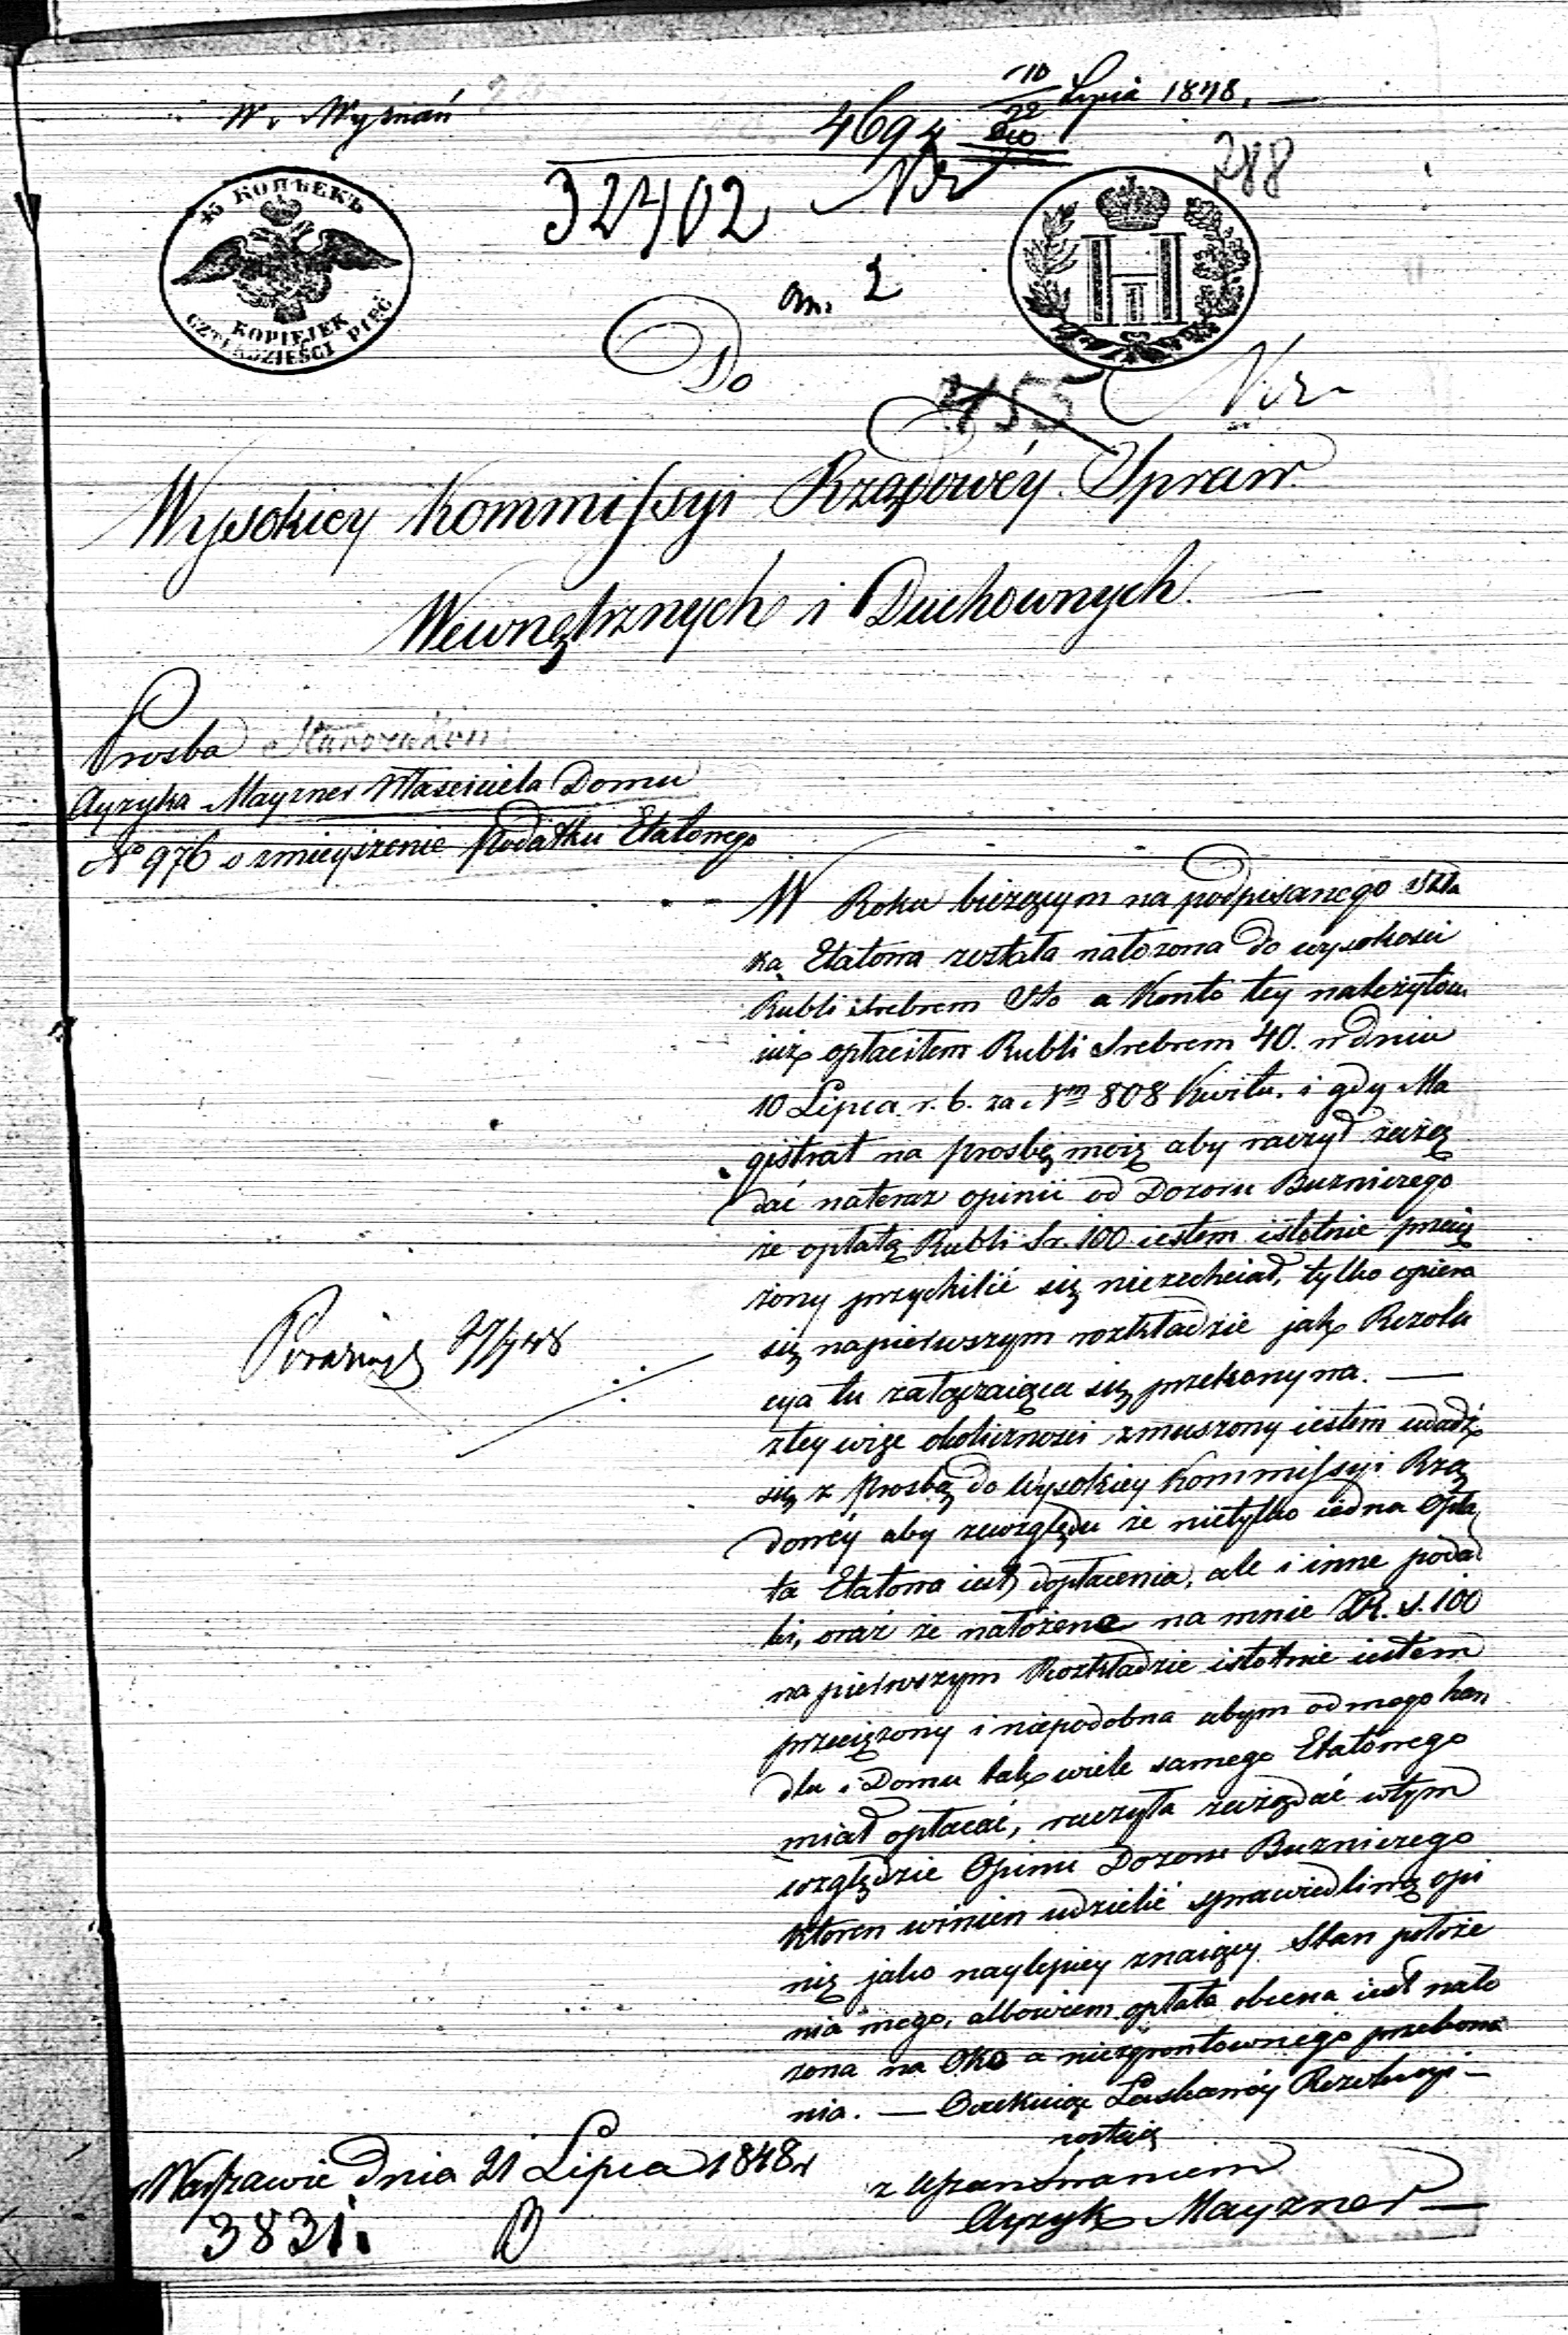 W. Wyznań
4694 10/22 Lipca 1848.
788
32402 Nr
45 КОПѢЕКЪ
KOPIEJEK
CZTERDZIEŚCI PIĘĆ
an. 2
Do
755
Wysokiey Kommissyi Rządowéy Spraw
Wewnętrznych i Duchownych.
Prosba Starozakon:
Ayzyka Mayzner Własciciela Domu
No 976 o zmieyszenie Podatku Etatowego
W Roku bieżącym na podpisanego Skła
ka Etatowa została nałożona do wysokości
Rubli srebrem Sto a Konto tey należytości
iuż opłaciłem Rubli Srebrem 40. w dniu
10 Lipca r. b. za Nm 808 Kwitu. i gdy Ma
gistrat na prosbę moię aby raczył zażą
dać nateraz opinii od Dozoru Buzniczego
że opłatą Rubli Sr. 100 iestem istotnie przecią
żony przychilić się niezechciał, tylko opiera
się napierwszym rozkładzie jak Rezolu
cya tu załączaiąca się przekonywa. —
ztey więc okoliczności zmuszony iestem udadź
się z prosbą do Wysokiey Kommissyi Rzą
dowéy aby zewzględu że nietylko iedna Opła
ta Etatowa iest dopłacenia, ale i inne podat
ki, oraz że nałożene na mnie R. S. 100
na pierwszym Rozkładzie istotnie iestem
przeciążony i niepodobna abym od mego han
dlu i Domu tak wiele samego Etatowego
miał opłacać, raczyła zażądać wtym
względzie Opinii Dozoru Buzniczego
ktoren winien udzielić sprawiedliwą opi
nię jako naylepiey znaiący Stan położe
nia mego, albowiem opłata obecna iest nało
żona na Oko a niezgrontownego przekona
nia. — Oczekuiąc Łaskawéy Rezolucyi —
zostaię
z Uszanowaniem
Ayzyk Mayzner
27/7 48
Warszawie dnia 21 Lipca 1848 r
3831.